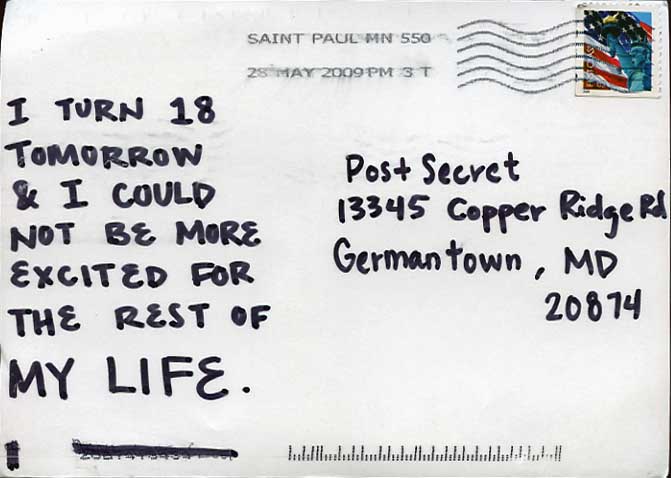 SAINT PAUL MN 550
28 MAY 2009 PM 3 T
I TURN 18
TOMORROW
& I COULD
NOT BE MORE
EXCITED FOR
THE REST OF
MY LIFE.
Post Secret
13345 Copper Ridge Rd
Germantown, MD
20874